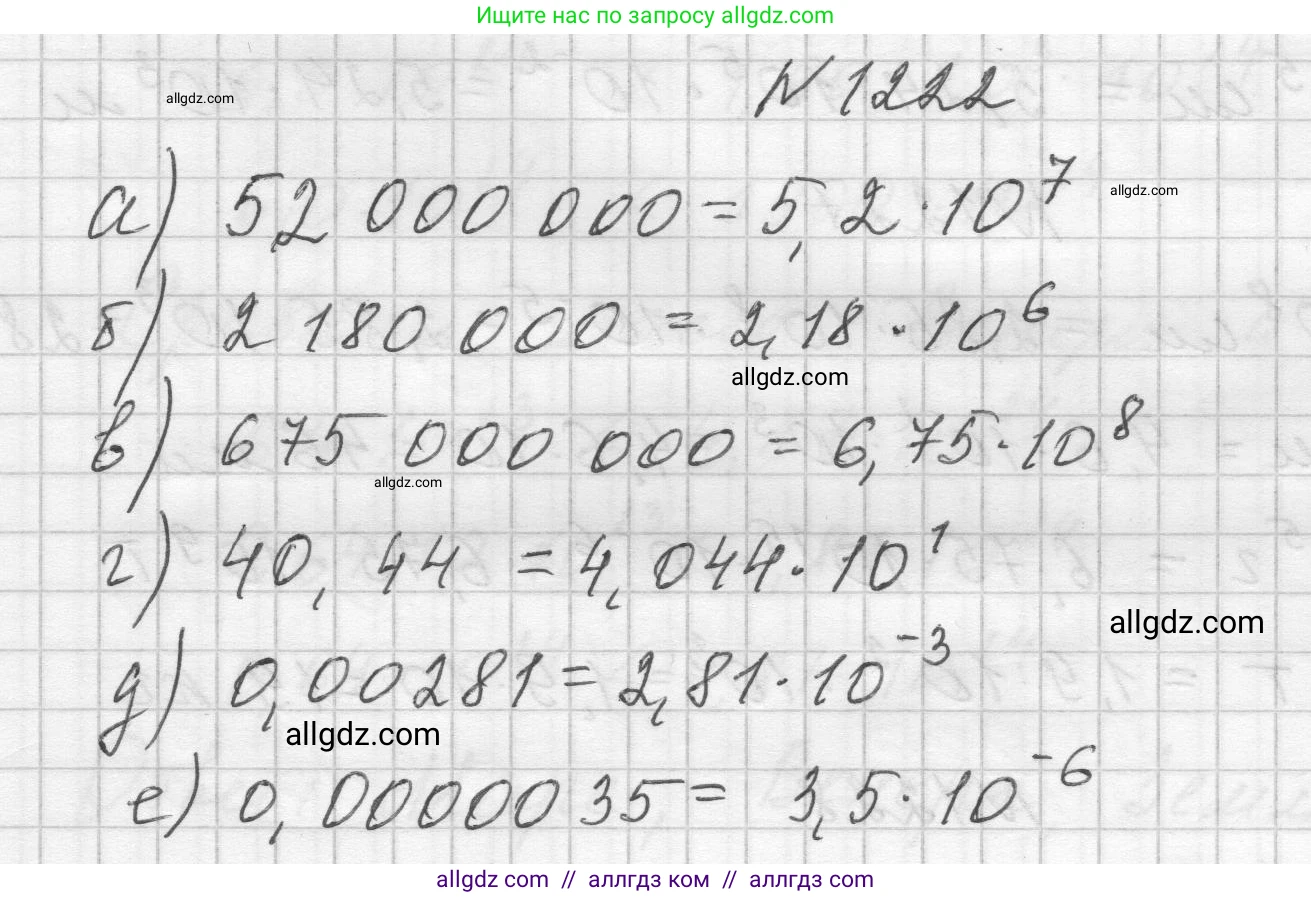 Ищите нас по запросу allgdz.com
N 1222
allgdz.com
а) 52 000 000 = 5,2 · 10^7
allgdz.com
б) 2 180 000 = 2,18 · 10^6
allgdz.com
в) 675 000 000 = 6,75 · 10^8
allgdz.com
г) 40,44 = 4,044 · 10^1
allgdz.com
д) 0,00281 = 2,81 · 10^-3
allgdz.com
е) 0,0000035 = 3,5 · 10^-6
allgdz com // аллгдз ком // аллгдз com